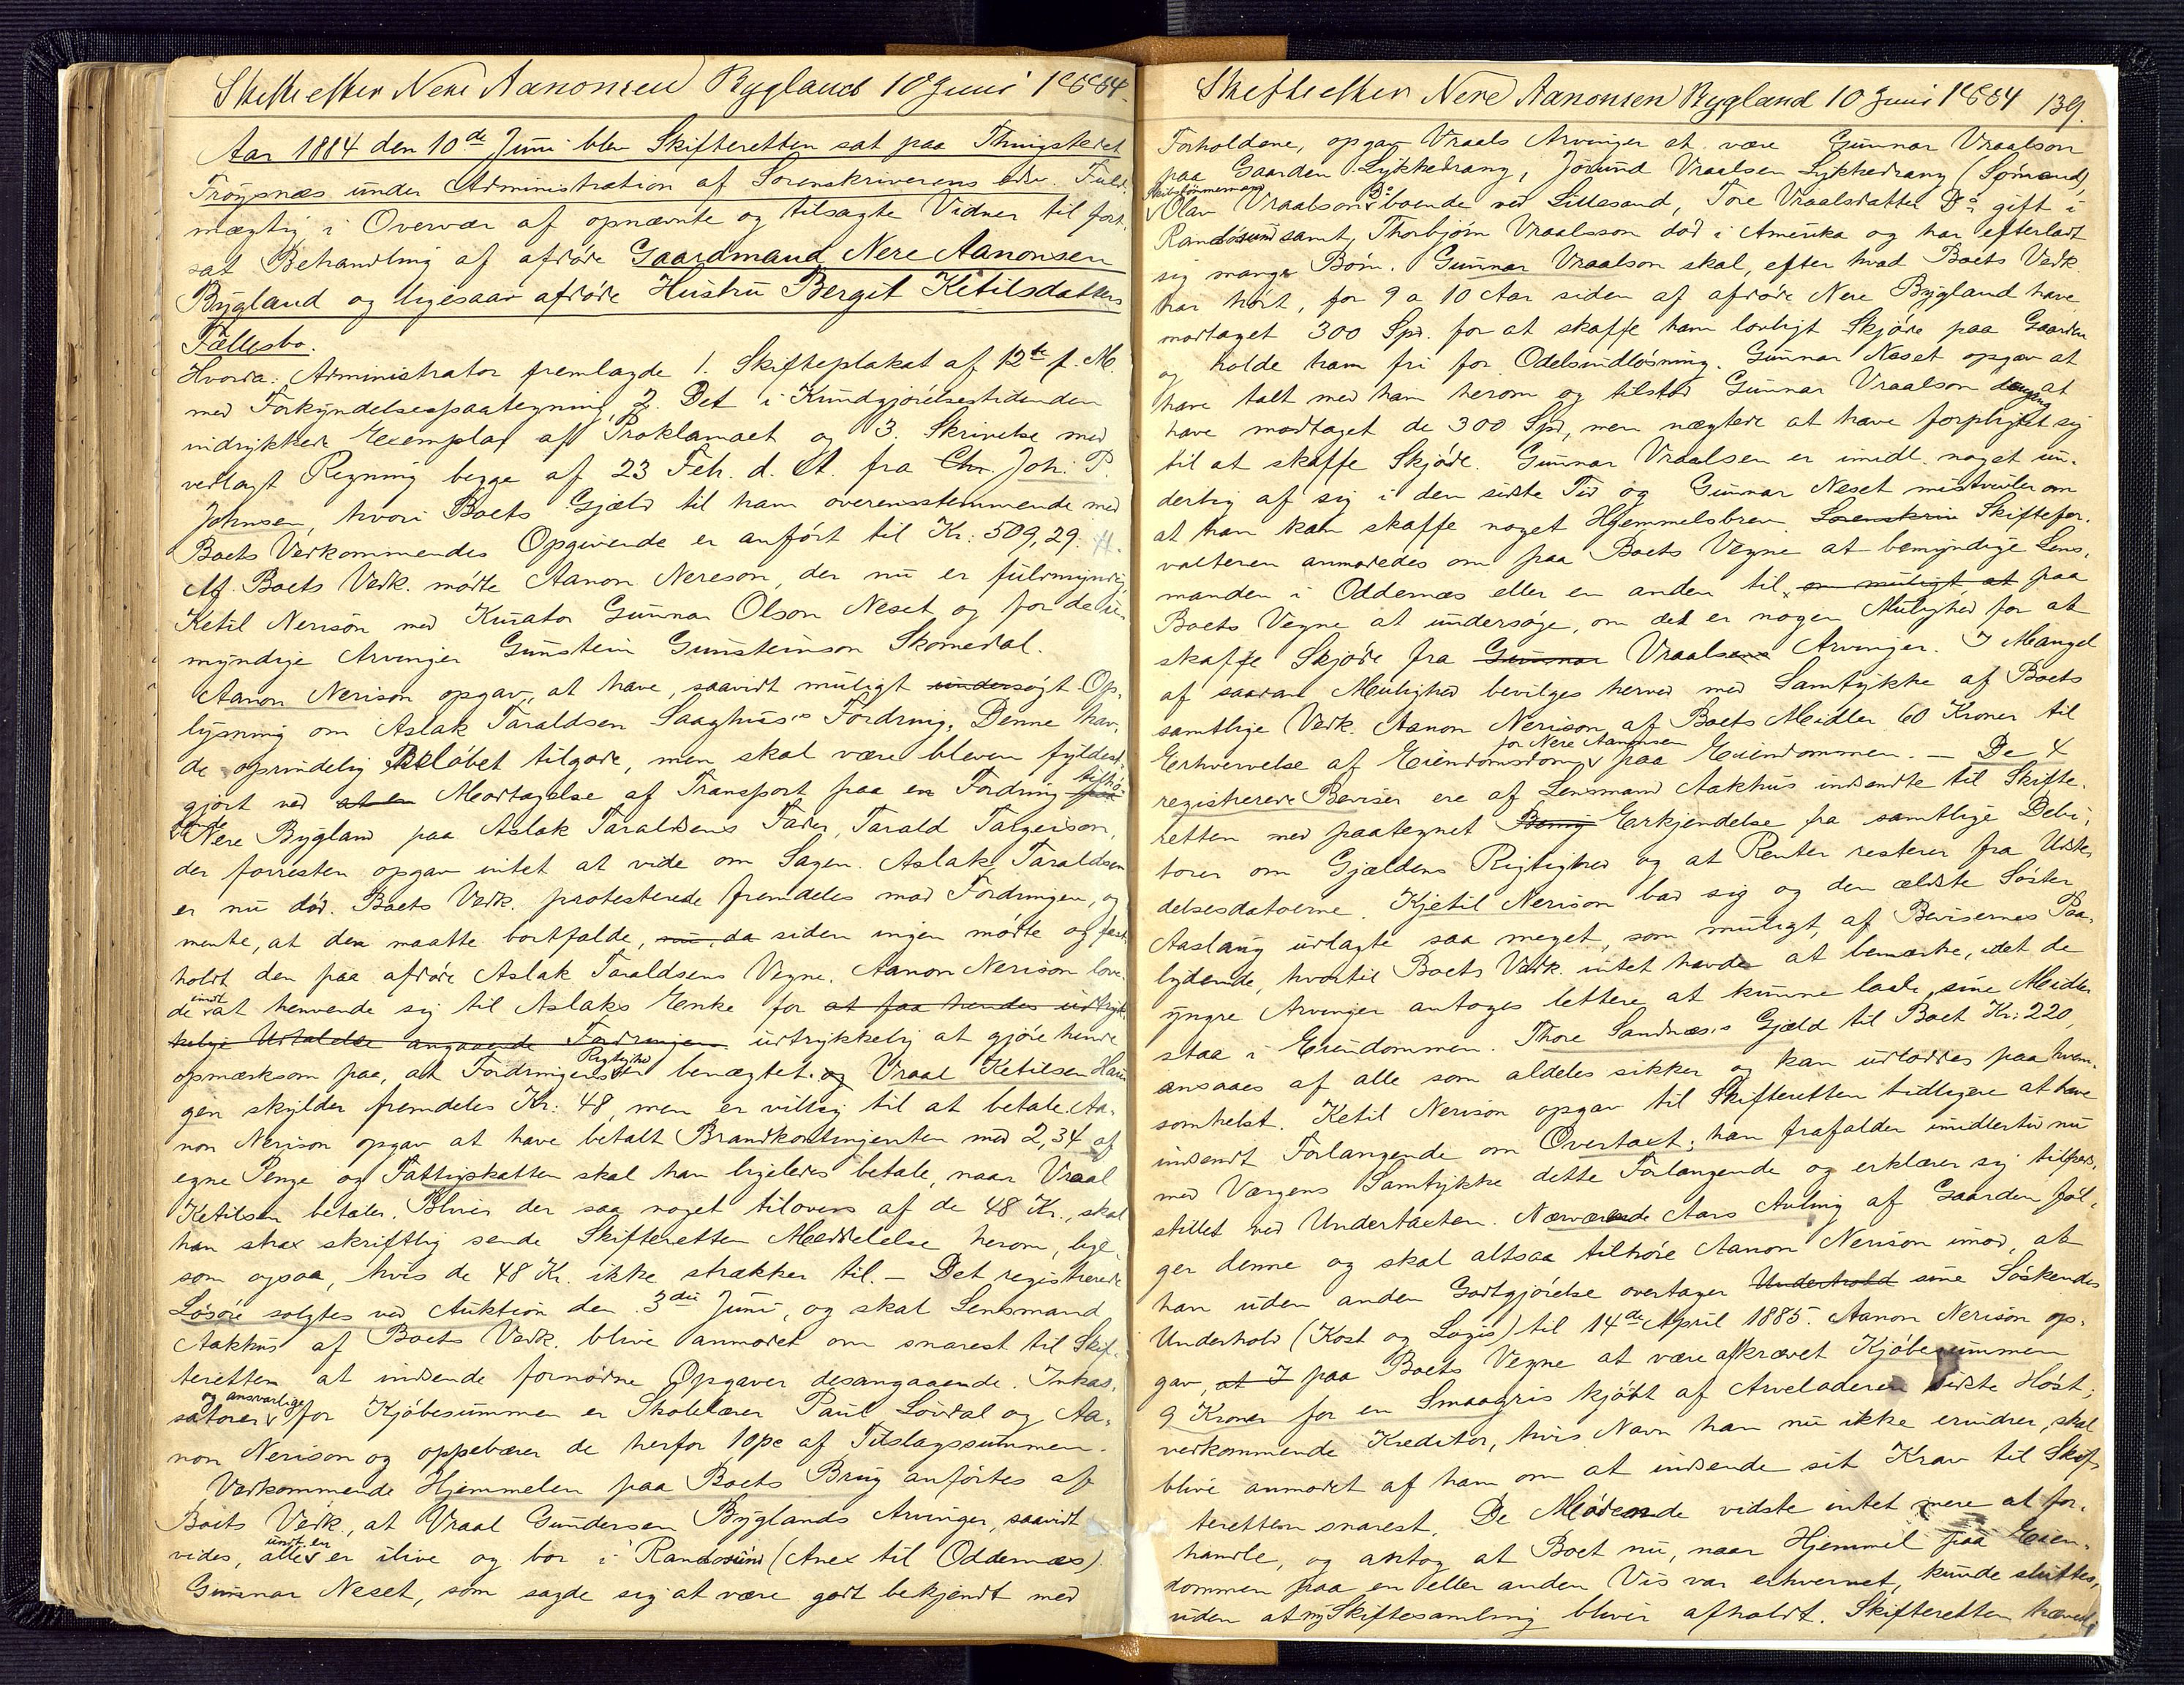 Skifte efter Nere Aanonsen Bygland 10 Juni 1884.
Aar 1884 den 10de Juni blev Skifteretten sat paa Thingstedet
Frøysnæs under Administration af Sorenskriverens edsv. Fuld-
mægtig i Overvær af opnævnte og tilsagte Vidner til fort-
sat Behandling af afdøde Gaardmand Nere Aanonsen
Bygland og ligesaa afdøde Hustru Bergit Ketilsdatters
Fællesbo.
Hvorda: Administrator fremlagde 1. Skifteplakat af 12te f. M.
med Forkyndelsespaategning, 2. Det i Kundgjørelsestidenden
indrykkede Exemplar af Proklamaet og 3. Skrivelse med
vedlagt Regning begge af 23 Feb. d. A. fra Chr. Joh. P.
Johnsen, hvori Boets Gjæld til ham overensstemmende med
Boets Vedkommendes Opgivende er anført til Kr: 509,29.
Af Boets Vedk. mødte Aanon Nereson, der nu er fuldmyndig,
Ketil Nerison med Kurator Gunnar Olson Neset og for de u-
myndige Arvinger Gunstein Gunsteinson Skomedal.
Aanon Nerison opgav, at have, saavidt muligt undersøgt Op-
lysning om Aslak Taraldsen Saaghus's Fordring. Denne hav-
de oprindelig Beløbet tilgode, men skal være bleven fyldest-
gjort ved at en Modtagelse af Transport paa en Fordring tilhø-
rende Nere Bygland paa Aslak Taraldsens Fader, Tarald Targeison,
der forresten opgav intet at vide om Sagen. Aslak Taraldsen
er nu død. Boets Vedk. protesterede fremdeles mod Fordringen, og
mente, at den maatte bortfalde, nu, da siden ingen mødte og fast-
holdt den paa afdøde Aslak Taraldsens Vegne. Aanon Nerison love-
de indt. at henvende sig til Aslaks Enke for at faa hendes udtryk-
kelige Udtalelse angaaende Fordringen udtrykkelig at gjøre hende
opmærksom paa, at Fordringens Rigtighed er benægtet. og Vraal Ketilsen Hau-
gen skylder fremdeles Kr: 48, men er villig til at betale. Aa-
non Nerison opgav at have betalt Brandkontingenten med 2,34 af
egne Penge og Fattigskatten skal han ligeledes betale, naar Vraal
Ketilsen betaler. Bliver der saa noget tilovers af de 48 Kr., skal
han strax skriftlig sende Skifteretten Meddelelse herom, lige-
som ogsaa, hvis de 48 Kr. ikke strækker til. — Det registrerede
Løsøre solgtes ved Auktion den 3die Juni, og skal Lensmand
Aakhus af Boets Vedk. blive anmodet om snarest til Skif-
teretten at indsende fornødne Opgaver desangaaende. Inkas-
satorer og ansvarlige for Kjøbesummen er Skolelærer Paul Lovdal og Aa-
non Nerison og oppebærer de herfor 10pc af Tilslagssummen.
Vedkommende Hjemmelen paa Boets Brug anførtes af
Boets Vedk., at Vraal Gundersen Byglands Arvinger, saavidt
vides, alle undt. en er ilive og bor i Randosund (Anex til Oddernæs).
Gunnar Neset, som sagde sig at være godt bekjendt med
Skifte efter Nere Aanonsen Bygland 10 Juni 1884 139.
Forholdene, opgav Vraals Arvinger at være Gunnar Vraalson
paa Gaarden Lykkedrang, Jørund Vraalsen Lykkedrang (Sømand),
Skibstømmermand Olav Vraalson Do boende ved Lillesand, Tore Vraalsdatter Do gift i
Randøsund samt Thorbjørn Vraalsson død i Amerika og har efterladt
sig mange Børn. Gunnar Vraalson skal, efter hvad Boets Vedk.
har hørt, for 9 a 10 Aar siden af afdøde Nere Bygland have
modtaget 300 Spd. for at skaffe ham lovligt Skjøde paa Gaarden
og holde ham fri for Odelsindløsning. Gunnar Neset opgav at
have talt med ham herom og tilstod Gunnar Vraalson dengang at
have modtaget de 300 Spd, men nægtede at have forpligtet sig
til at skaffe Skjøde. Gunnar Vraalsen er imidl. noget un-
derlig af sig i den sidste Tid og Gunnar Neset mistvivler om
at han kan skaffe noget Hjemmelsbrev. Sorenskriv Skiftefor-
valteren anmodedes om paa Boets Vegne at bemyndige Lens-
manden i Oddernæs eller en anden til, om muligt, at paa
Boets Vegne at undersøge, om det er nogen Mulighed for at
skaffe Skjøde fra Gunnar Vraalsens Arvinger. I Mangel
af saadan Mulighed bevilges herved med Samtykke af Boets
samtlige Vedk. Aanon Nerison af Boets Midler 60 Kroner til
Erhvervelse af Eiendomsdom for Nere Aanonsen paa Eiendommen. — De 4
registrerede Beviser ere af Lensmand Aakhus indsendte til Skifte-
retten med paategnet Erkjendelse fra samtlige Debi-
torer om Gjældens Rigtighed og at Renter resterer fra Udste-
delsesdatoerne. Kjetil Nerison bad sig og den ældste Søster
Aaslaug udlagte saa meget, som muligt, af Bevisernes Paa-
lydende, hvortil Boets Vedk. intet havde at bemærke, idet de
yngre Arvinger antoges lettere at kunne lade sine Midler
staa i Eiendommen. Thore Sandnæs's Gjæld til Boet Kr: 220,
ansaaes af alle som aldeles sikker og kan udloddes paa hvem-
somhelst. Ketil Nerison opgav til Skifteretten tidligere at have
indsendt Forlangende om Overtaxt; han frafalder imidlertid nu
med Værgens Samtykke dette Forlangende og erklærer sig tilfreds-
stillet ved Undertaxten. Nærværende Aars Avling af Gaarden føl-
ger denne og skal altsaa tilhøre Aanon Nerison imod, at
han uden anden Godtgjørelse overtager Underhold sine Søskendes
Underhold (Kost og Logis) til 14de April 1885. Aanon Nerison op-
gav, at I paa Boets Vegne at være afkrævet Kjøbesummen
9 Kroner for en Smaagris kjøbt af Arveladeren sidste Høst;
vedkommende Kreditor, hvis Navn han nu ikke erindrer, skal
blive anmodet af ham om at indsende sit Krav til Skif-
teretten snarest. De Mødende vidste intet mere at for-
handle, og antog at Boet nu, naar Hjemmel paa Eien-
dommen paa en eller anden Vis var erhvervet, kunde sluttes,
uden at ny Skiftesamling bliver afholdt. Skifteretten hævedes